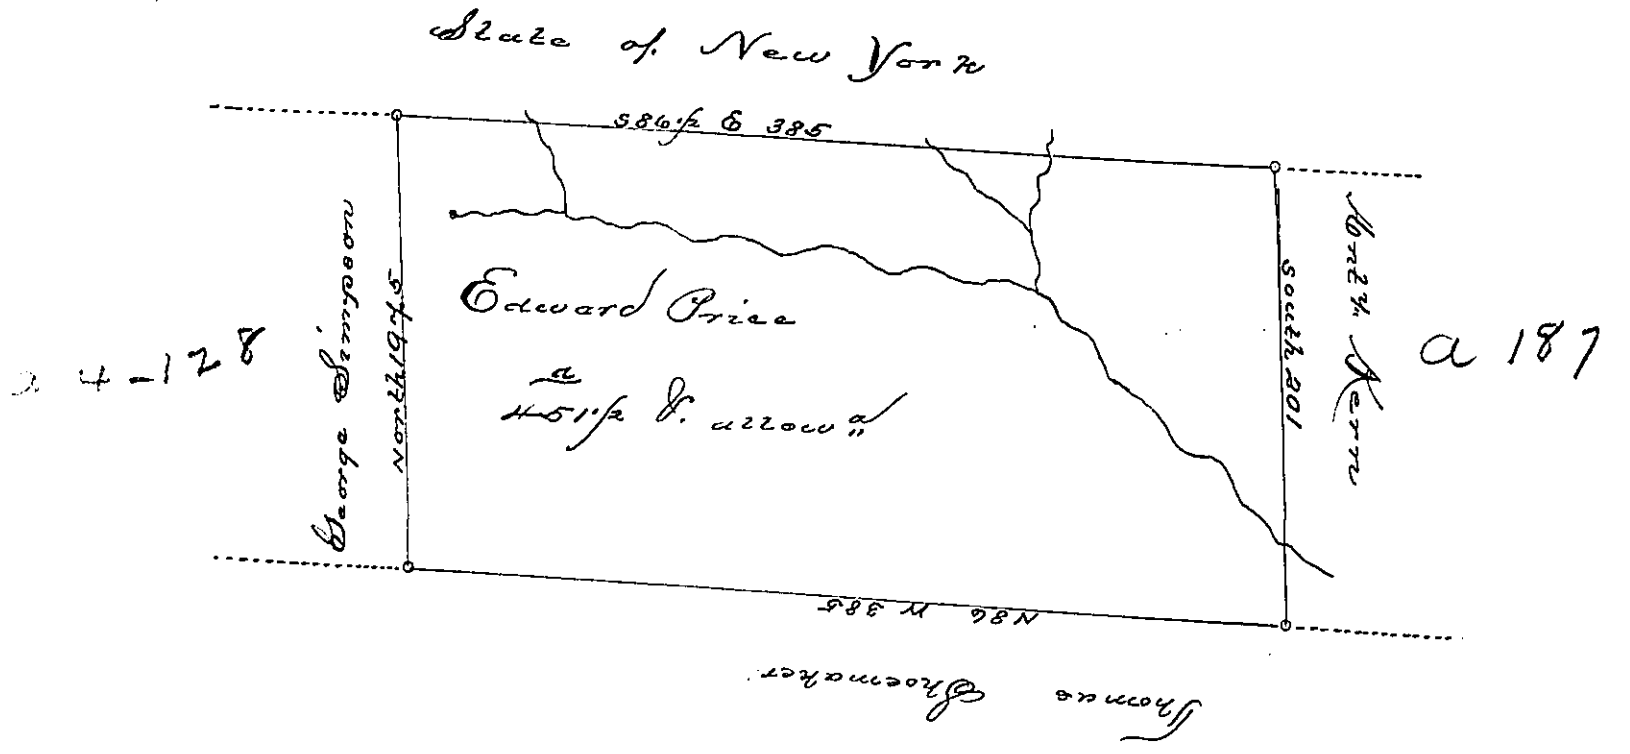 State of New York
S86½ E 385
George Simpson
North 197.5
Edward Price
a
451½ & allowa
South 201
Montn. Kern
a 187
4-128
N86 W 385
Thomas Shoemaker